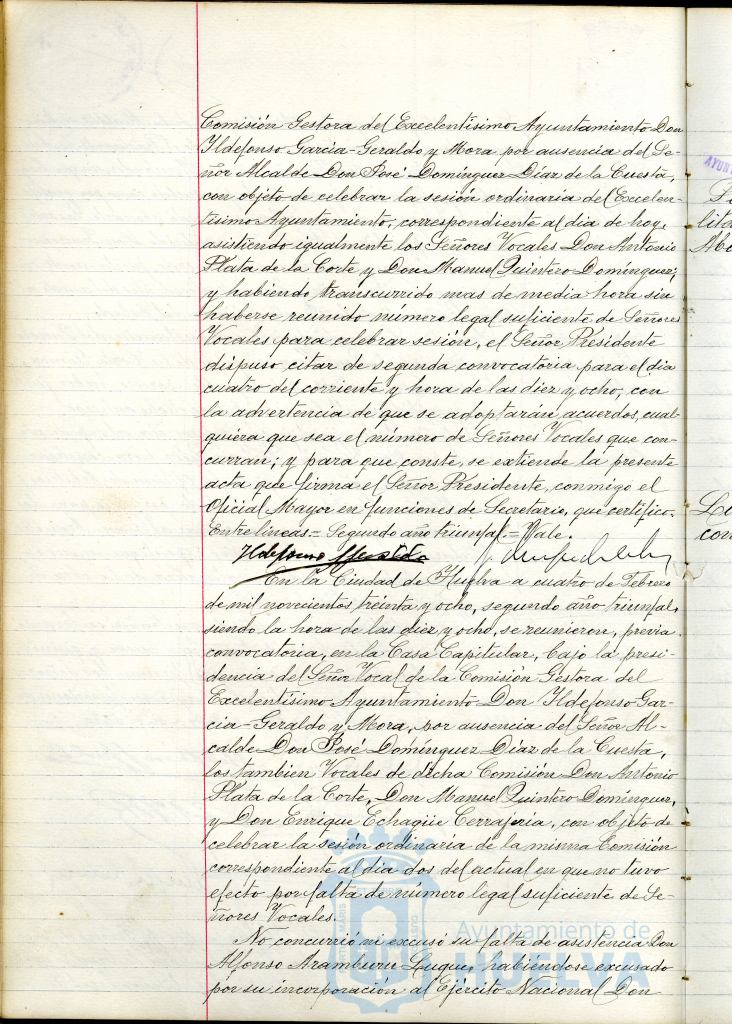 Comisión Gestora del Excelentísimo Ayuntamiento Don
Ildefonso García-Geraldo y Mora por ausencia del Se-
ñor Alcalde Don José Domínguez Díaz de la Cuesta,
con objeto de celebrar la sesión ordinaria del Excelen-
tísimo Ayuntamiento, correspondiente al dia de hoy,
asistiendo igualmente los Señores Vocales Don Antonio
Plata de la Corte y Don Manuel Quintero Domínguez;
y habiendo transcurrido mas de media hora sin
haberse reunido número legal suficiente de Señores
Vocales para celebrar sesión, el Señor Presidente
dispuso citar de segunda convocatoria para el dia
cuatro del corriente y hora de las diez y ocho, con
la advertencia de que se adoptarán acuerdos, cual-
quiera que sea el número de Señores Vocales que con-
curran; y para que conste, se extiende la presente
acta que firma el Señor Presidente, conmigo el
Oficial Mayor en funciones de Secretario, que certifico.
Entre lineas = Segundo año triunfal = Vale.
Ildefonso
En la Ciudad de Huelva a cuatro de Febrero
de mil novecientos treinta y ocho, segundo año triunfal,
siendo la hora de las diez y ocho, se reunieron, previa
convocatoria, en la Casa Capitular, bajo la presi-
dencia del Señor Vocal de la Comisión Gestora del
Excelentísimo Ayuntamiento Don Ildefonso Gar-
cía-Geraldo y Mora, por ausencia del Señor Al-
calde Don José Domínguez Díaz de la Cuesta,
los tambien Vocales de dicha Comisión Don Antonio
Plata de la Corte, Don Manuel Quintero Domínguez,
y Don Enrique Echagüe Cerrajería, con objeto de
celebrar la sesión ordinaria de la misma Comisión
correspondiente al dia dos del actual en que no tuvo
efecto por falta de número legal suficiente de Se-
ñores Vocales.
No concurrió ni excusó su falta de asistencia Don
Alfonso Aramburu Luque, habiéndose excusado
por su incorporación al Ejército Nacional Don
Ayuntamiento de
HUELVA